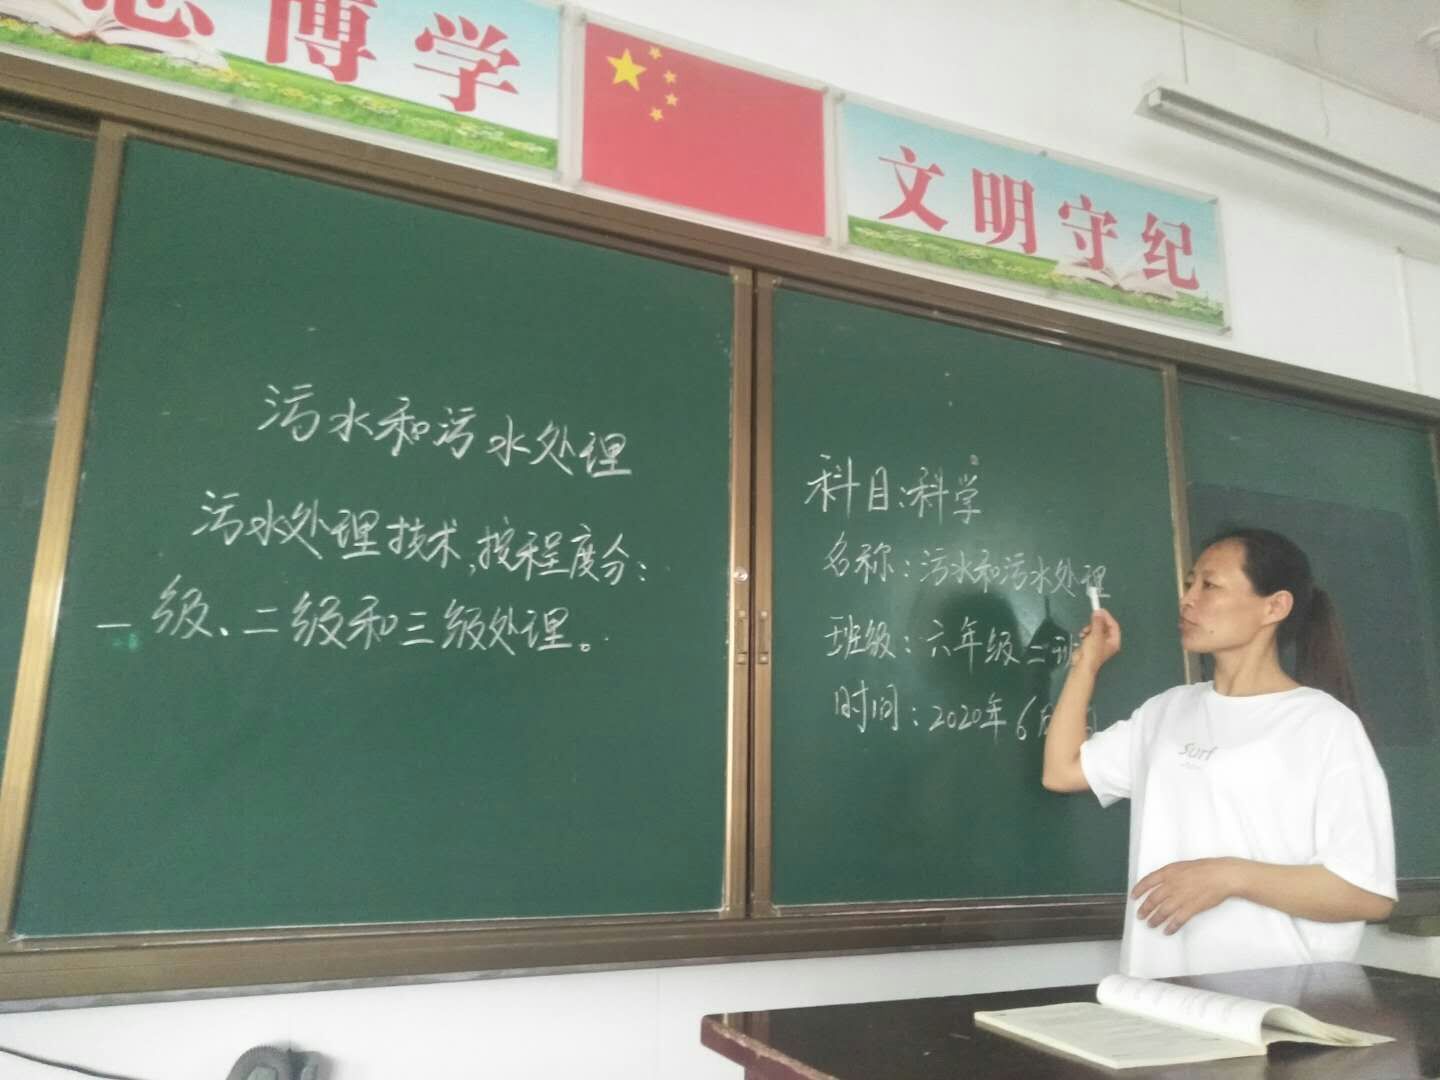 博学
文明守纪
污水和污水处理
污水处理技术,按程度分:
一级、二级和三级处理。
科目:科学
名称:污水和污水处理
班级:六年级二班
时间:2020年6月
Surf